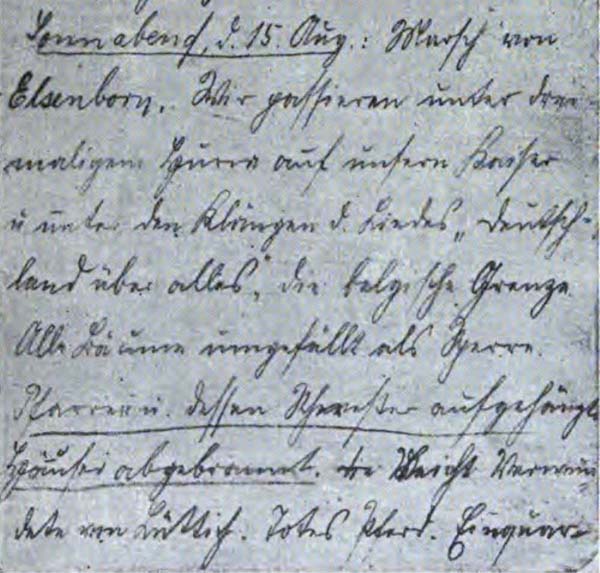 Sonnabend, d. 15. Aug.: Marsch von
Elsenborn. Wir passieren unter drei-
maligem Hurra auf unsern Kaiser
u unter den Klängen d. Liedes „Deutsch-
land über alles“ die belgische Grenze.
Alle Bäume umgefällt als Sperre.
Pfarrer u. dessen Schwester aufgehängt
Häuser abgebrannt. Leicht Verwun-
dete von Lüttich. Totes Pferd. Einquar-